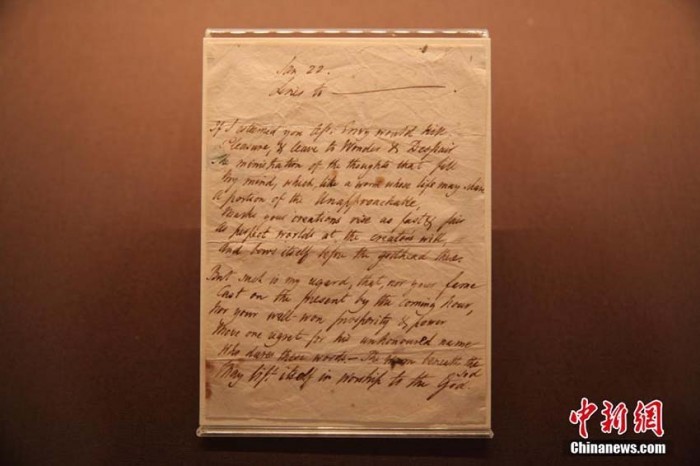 Jan 22.
Lines to ———.
If I esteemed you less, Envy would kill
Pleasure, & leave to Wonder & Despair
The ministration of the thoughts that fill
My mind, which, like a worm whose life may share
A portion of the Unapproachable,
Marks your creations rise as fast & fair
As perfect worlds at the creator's will,
And bows itself before the godhead there.
But such is my regard, that, nor your fame
Cast on the present by the coming hour,
Nor your well-won prosperity & power
Move one regret for his unhonoured name
Who dares these words — The worm beneath the
sod
May lift itself in worship to the God
中新网
Chinanews.com